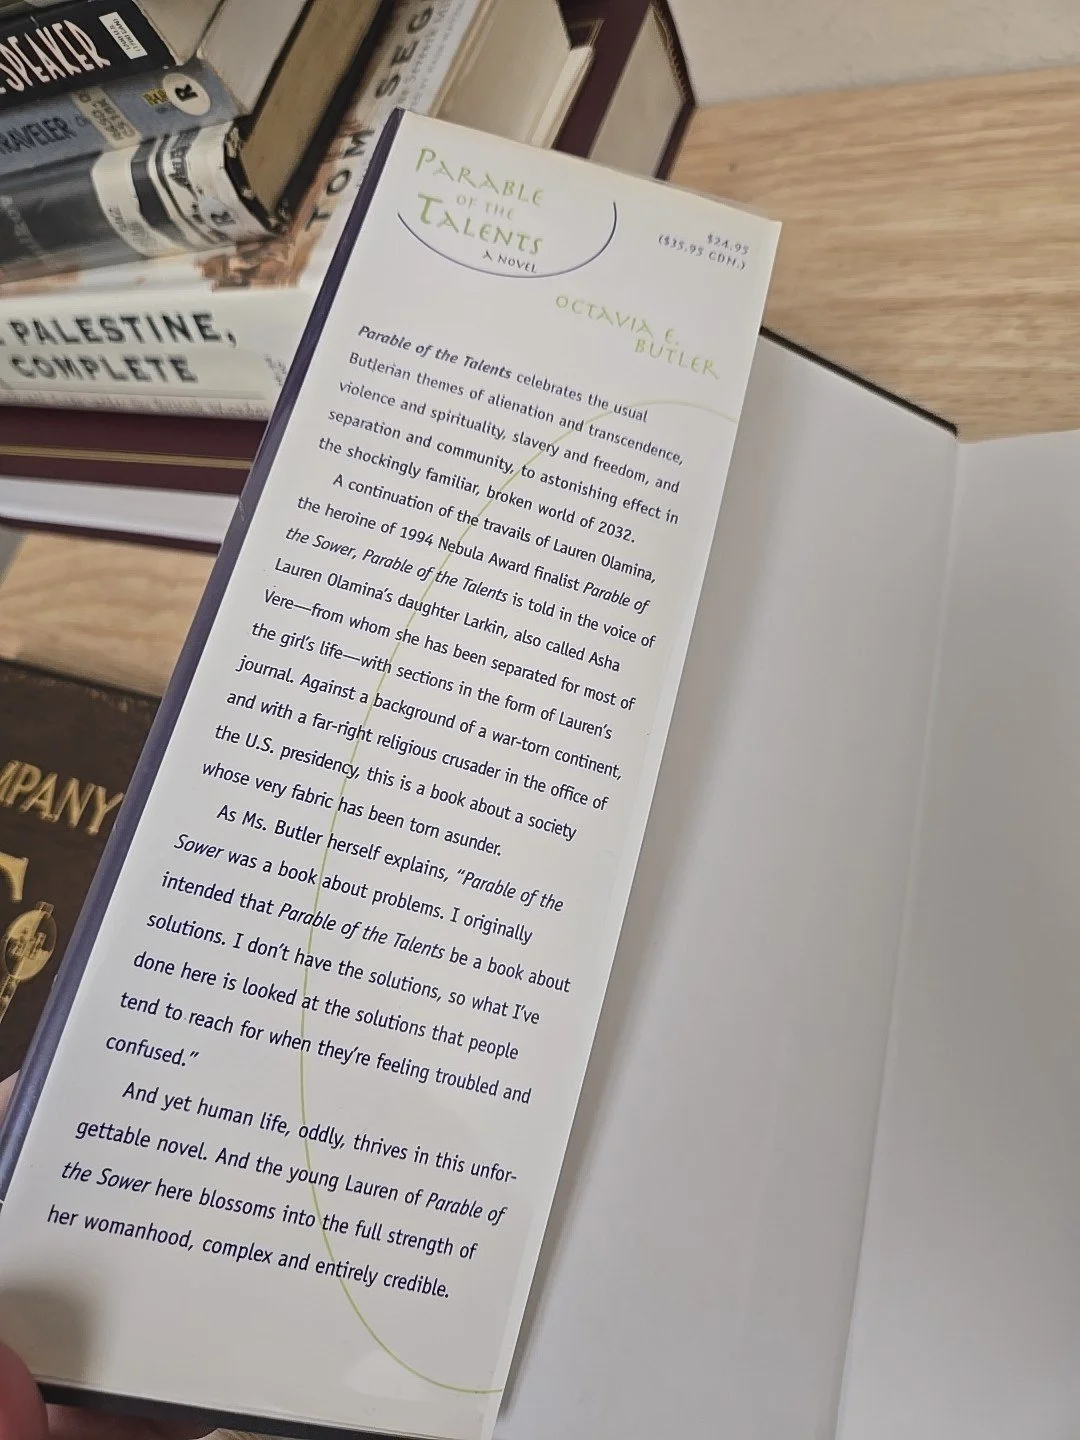 SPEAKER
TRAVELER
R
TOM SEG
PALESTINE,
COMPLETE
MPANY
PARABLE
OF THE
TALENTS
A NOVEL
$24.95
($35.95 CDN.)
OCTAVIA E.
BUTLER
Parable of the Talents celebrates the usual
Butlerian themes of alienation and transcendence,
violence and spirituality, slavery and freedom, and
separation and community, to astonishing effect in
the shockingly familiar, broken world of 2032.
A continuation of the travails of Lauren Olamina,
the heroine of 1994 Nebula Award finalist Parable of
the Sower, Parable of the Talents is told in the voice of
Lauren Olamina's daughter Larkin, also called Asha
Vere—from whom she has been separated for most of
the girl's life—with sections in the form of Lauren's
journal. Against a background of a war-torn continent,
and with a far-right religious crusader in the office of
the U.S. presidency, this is a book about a society
whose very fabric has been torn asunder.
As Ms. Butler herself explains, "Parable of the
Sower was a book about problems. I originally
intended that Parable of the Talents be a book about
solutions. I don't have the solutions, so what I've
done here is looked at the solutions that people
tend to reach for when they're feeling troubled and
confused."
And yet human life, oddly, thrives in this unfor-
gettable novel. And the young Lauren of Parable of
the Sower here blossoms into the full strength of
her womanhood, complex and entirely credible.